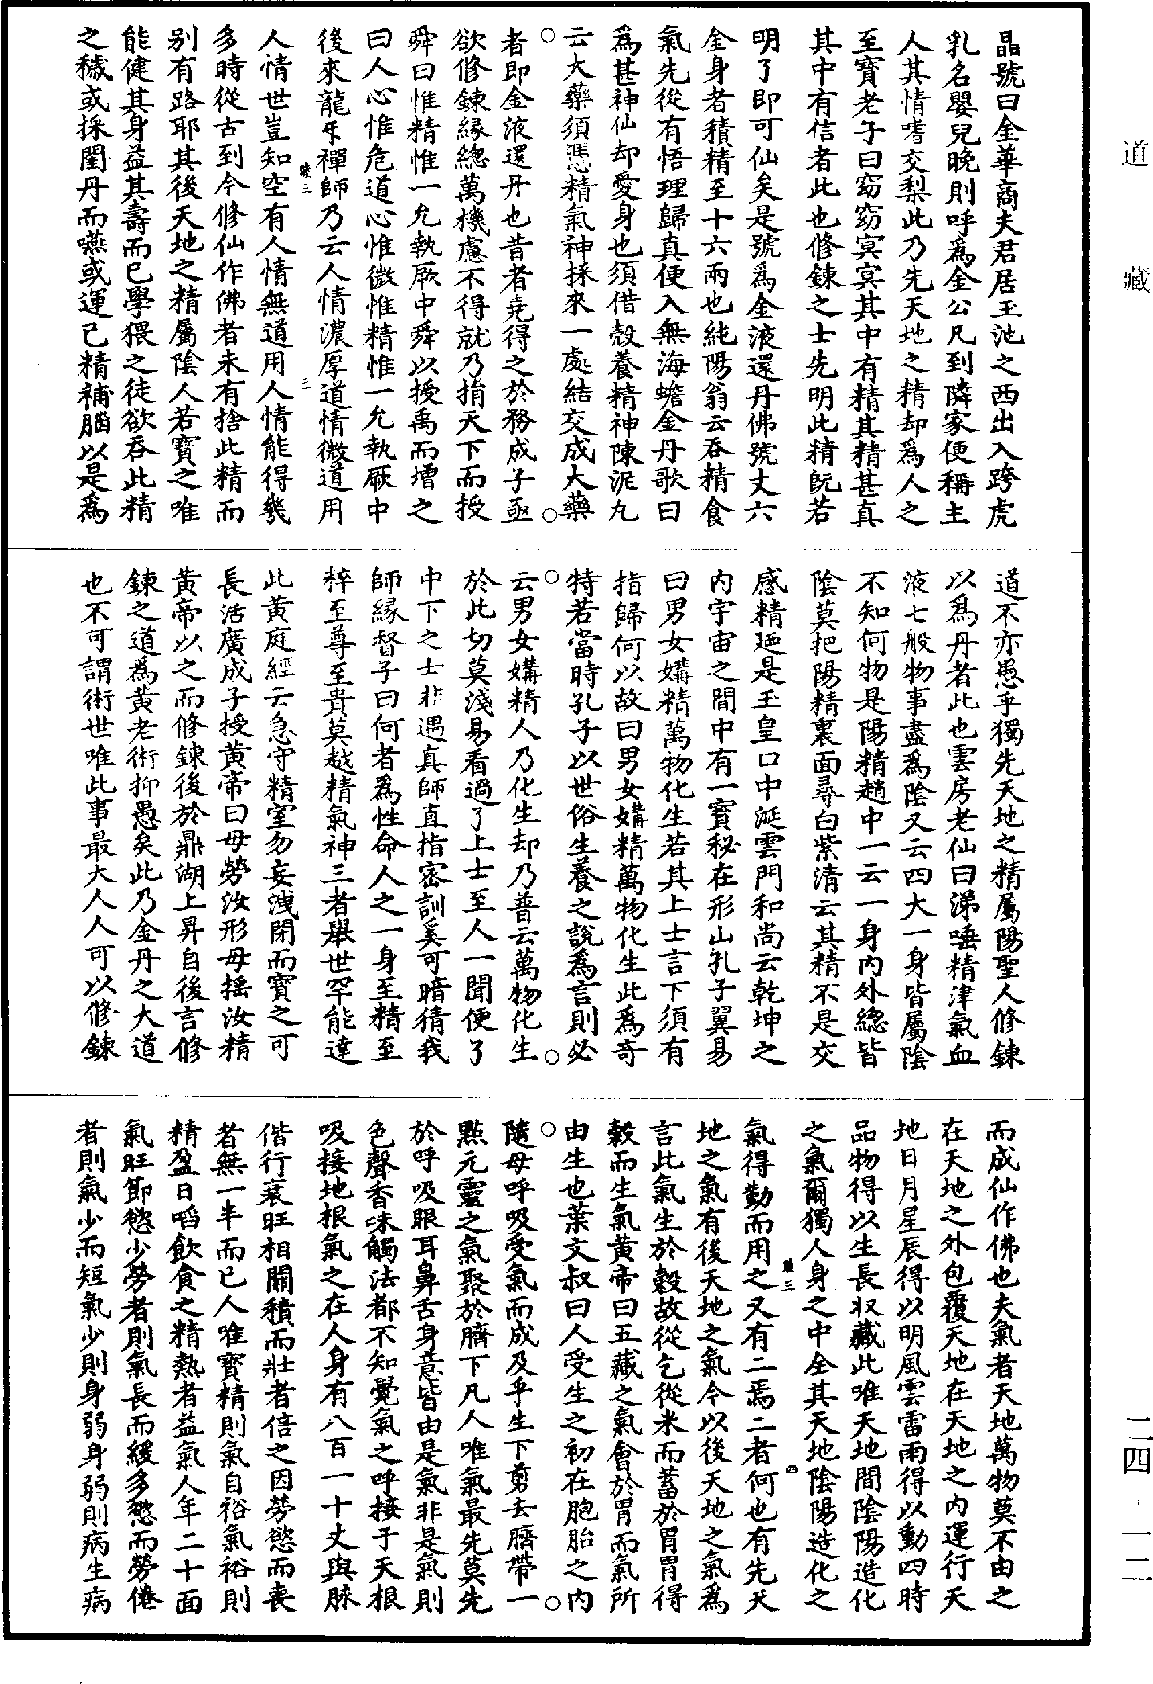 道藏
二四·一二
晶號曰金華商夫君居玉池之西出入跨虎
乳名嬰兒晚則呼爲金公凡到隣家便稱主
人其情嗜交梨此乃先天地之精却爲人之
至寶老子曰窈窈冥冥其中有精其精甚真
其中有信者此也修鍊之士先明此精旣若
明了即可仙矣是號爲金液還丹佛號丈六
金身者積精至十六兩也純陽翁云吞精食
氣先從有悟理歸真便入無海蟾金丹歌曰
爲甚神仙却愛身也須借殼養精神陳泥丸
云大藥須憑精氣神採來一處結交成大藥
者即金液還丹也昔者堯得之於務成子亟
欲修鍊緣總萬機慮不得就乃捐天下而授
舜曰惟精惟一允執厥中舜以授禹而增之
曰人心惟危道心惟微惟精惟一允執厥中
後來龍牙禪師乃云人情濃厚道情微道用
人情世豈知空有人情無道用人情能得幾
多時從古到今修仙作佛者未有捨此精而
别有路耶其後天地之精屬陰人若寶之唯
能健其身益其壽而已學猥之徒欲吞此精
之穢或採閨丹而嚥或運己精補腦以是爲
道不亦愚乎獨先天地之精屬陽聖人修鍊
以爲丹者此也雲房老仙曰涕唾精津氣血
液七般物事盡爲陰又云四大一身皆屬陰
不知何物是陽精趙中一云一身内外總皆
陰莫把陽精裏面尋白紫清云其精不是交
感精廼是玉皇口中涎雲門和尚云乾坤之
内宇宙之間中有一寶秘在形山孔子翼易
曰男女媾精萬物化生若其上士言下須有
指歸何以故曰男女媾精萬物化生此爲奇
特若當時孔子以世俗生養之說爲言則必
云男女媾精人乃化生却乃普云萬物化生
於此切莫淺易看過了上士至人一聞便了
中下之士非遇真師直指密訓奚可暗猜我
師緣督子曰何者爲性命人之一身至精至
粹至尊至貴莫越精氣神三者舉世罕能達
此黃庭經云急守精室勿妄洩閉而寶之可
長活廣成子授黃帝曰毋勞汝形毋摇汝精
黃帝以之而修鍊後於鼎湖上昇自後言修
鍊之道爲黃老術抑愚矣此乃金丹之大道
也不可謂術世唯此事最大人人可以修鍊
而成仙作佛也夫氣者天地萬物莫不由之
在天地之外包覆天地在天地之内運行天
地日月星辰得以明風雲雷雨得以動四時
品物得以生長収藏此唯天地間陰陽造化
之氣爾獨人身之中全其天地陰陽造化之
氣得勤而用之又有二焉二者何也有先天
地之氣有後天地之氣今以後天地之氣爲
言此氣生於穀故從气從米而蓄於胃胃得
穀而生氣黃帝曰五藏之氣會於胃而氣所
由生也葉文叔曰人受生之初在胞胎之内
隨母呼吸受氣而成及乎生下剪去臍帶一
點元靈之氣聚於臍下凡人唯氣最先莫先
於呼吸眼耳鼻舌身意皆由是氣非是氣則
色聲香味觸法都不知覺氣之呼接于天根
吸接地根氣之在人身有八百一十丈與脉
偕行衰旺相關積而壯者倍之因勞慾而喪
者無一半而已人唯寶精則氣自裕氣裕則
精盈日啗飲食之精熱者益氣人年二十面
氣旺節慾少勞者則氣長而緩多慾而勞倦
者則氣少而短氣少則身弱身弱則病生病